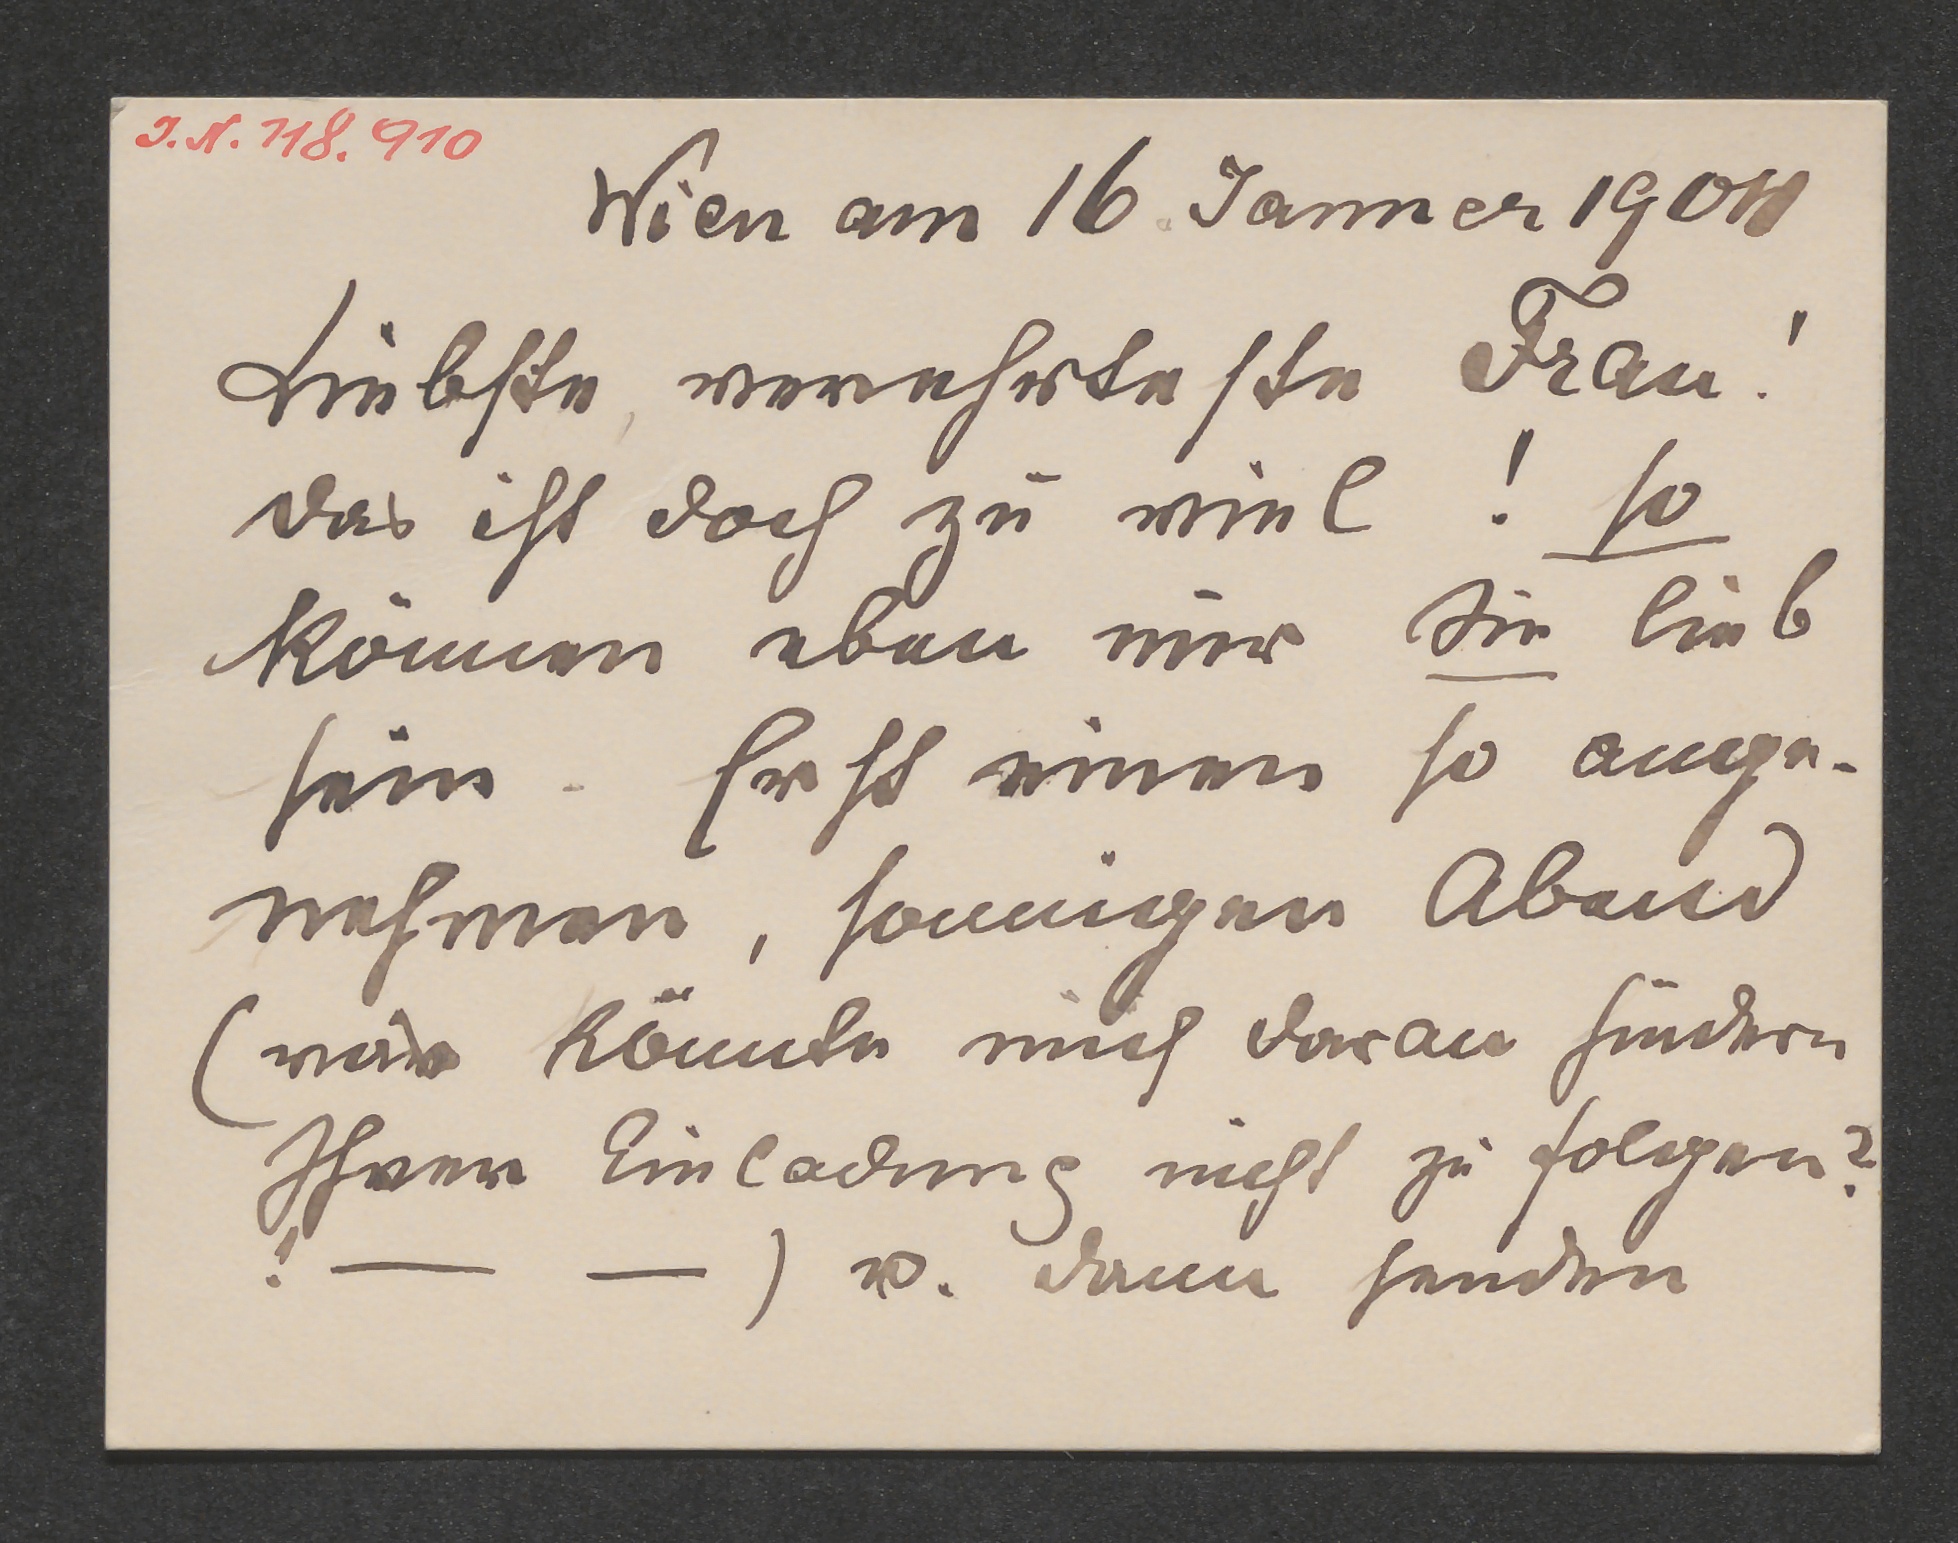 J.N. 118.910
Wien am 16. Jänner 1901
Liebste, verehrteste Frau!
das ist doch zu viel! so
können eben nur Sie lieb
sein. Erst einen so ange-
nehmen, sonnigen Abend
(was könnte mich daran hindern
Ihrer Einladung nicht zu folgen?
! — —) u. dann senden